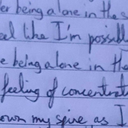 being alone in the s
eel like I'm possibl
e being alone in the
feeling of concentrat
own my spine as I